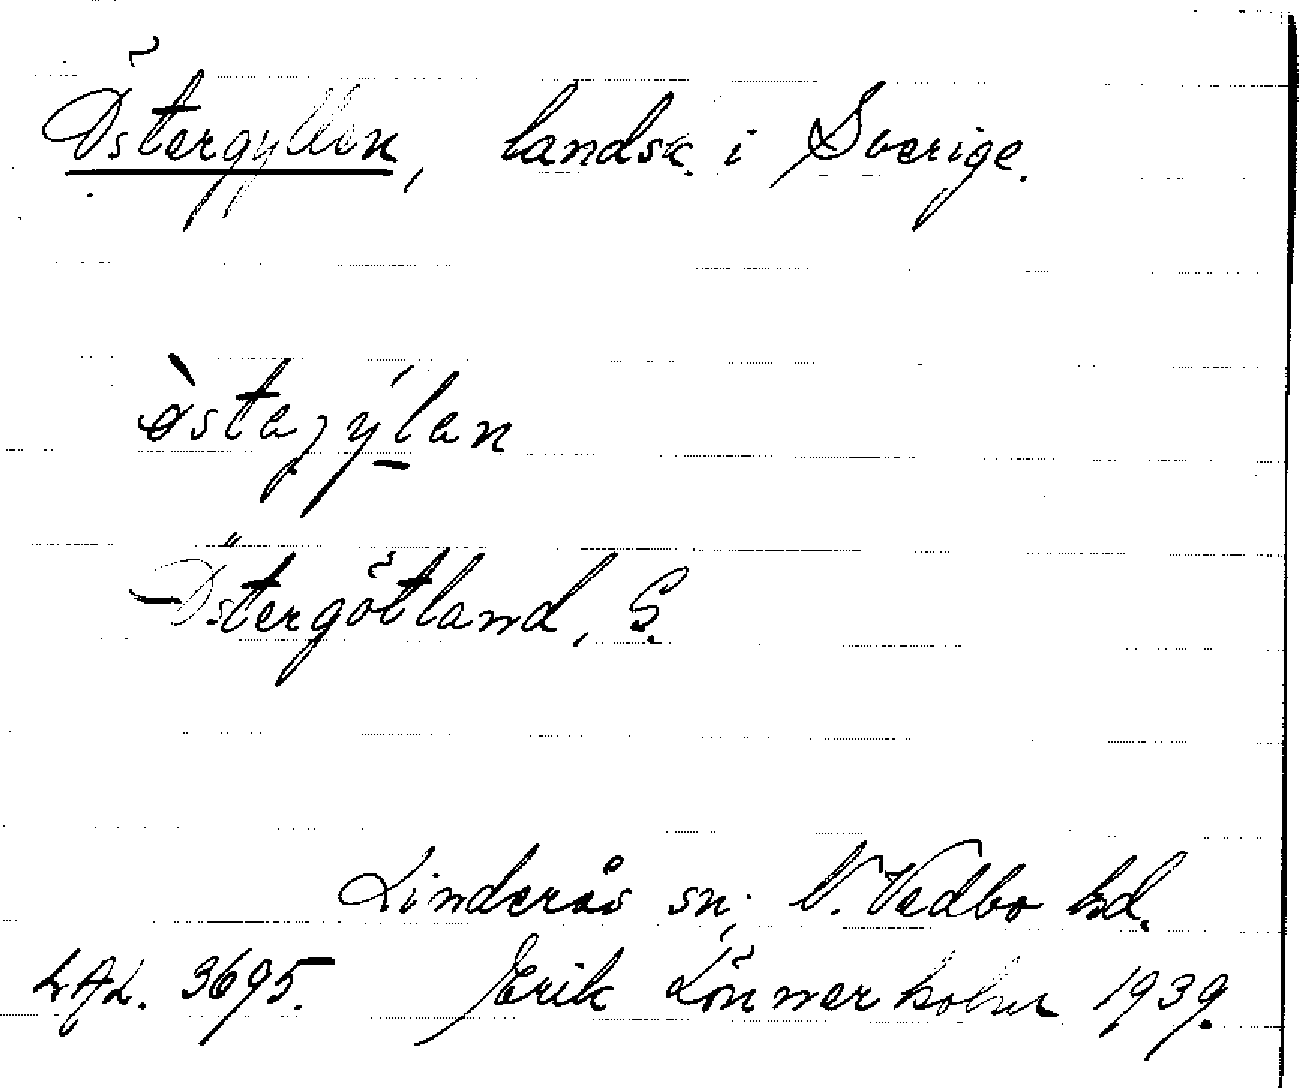 Östergyllen, landsk. i Sverige.
östaɟýlan
Östergötland, S.
Linderås sn; N. Vedbo hd.
LAL. 3695. Erik Lönnerholm 1939.